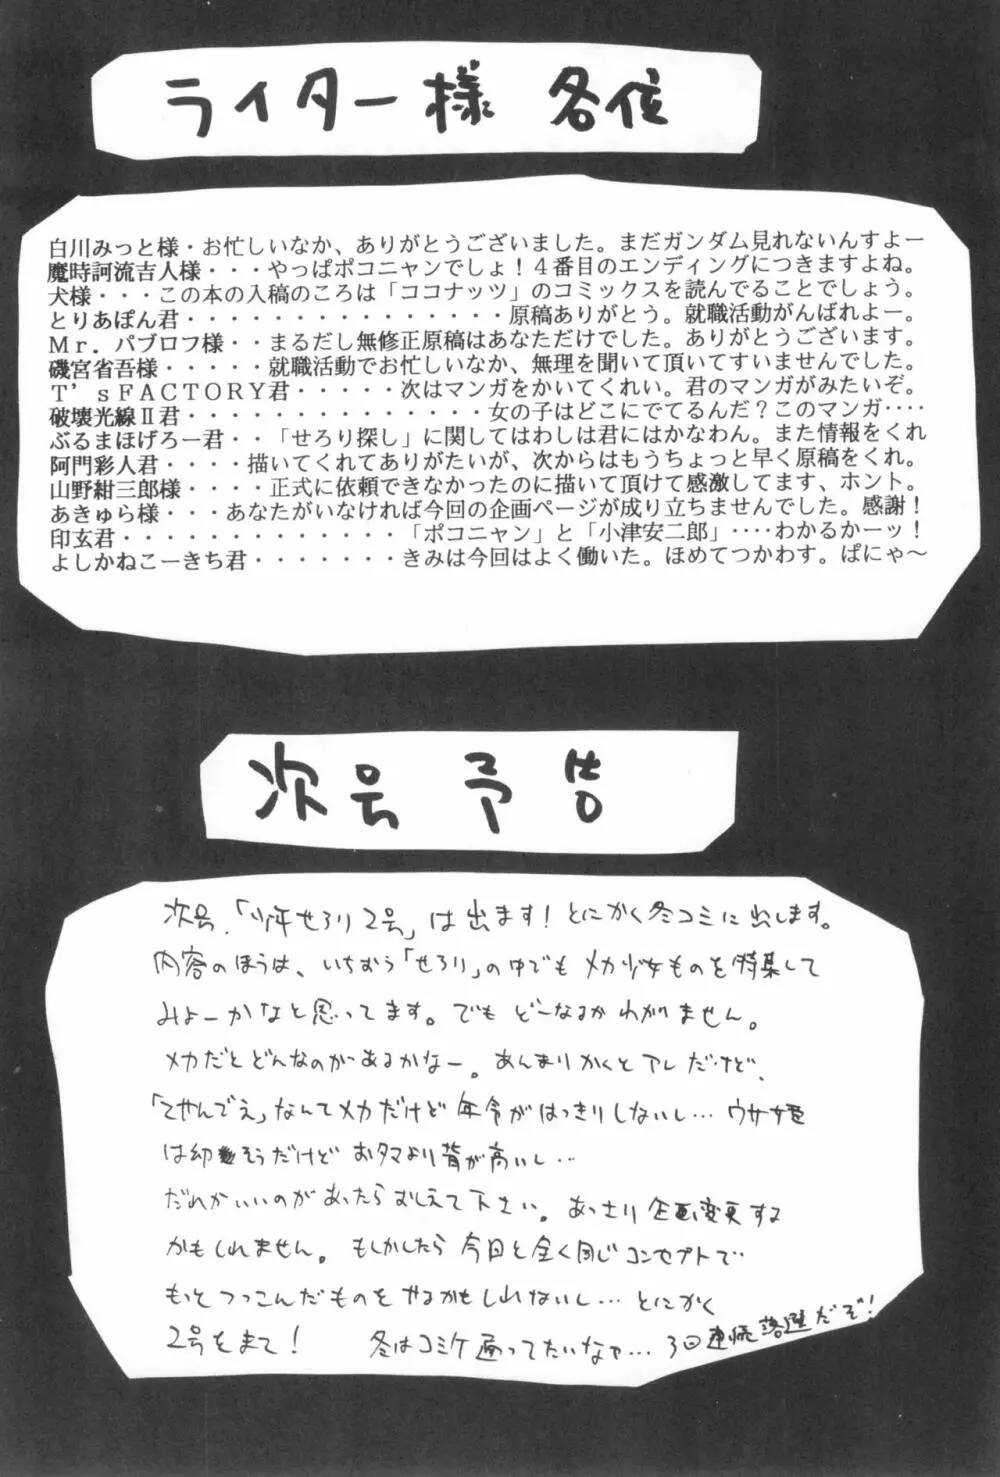 ライター様 各位
白川みっと様・お忙しいなか、ありがとうございました。まだガンダム見れないんすよー
魔時訶流吉人様・・・やっぱポコニャンでしょ！４番目のエンディングにつきますよね。
犬様・・・この本の入稿のころは「ココナッツ」のコミックスを読んでることでしょう。
とりあぽん君・・・・・・・・・・・・・・・原稿ありがとう。就職活動がんばれよー。
Ｍｒ．パブロフ様・・まるだし無修正原稿はあなただけでした。ありがとうございます。
磯宮省吾様・・・・・就職活動でお忙しいなか、無理を聞いて頂いてすいませんでした。
Ｔ’ｓＦＡＣＴＯＲＹ君・・・・・次はマンガをかいてくれい。君のマンガがみたいぞ。
破壊光線Ⅱ君・・・・・・・・・・・・・・女の子はどこにでてるんだ？このマンガ‥‥
ぶるまほげろー君・・「せろり探し」に関してはわしは君にはかなわん。また情報をくれ
阿門彩人君・・・・描いてくれてありがたいが、次からはもうちょっと早く原稿をくれ。
山野紺三郎様・・・・正式に依頼できなかったのに描いて頂けて感激してます、ホント。
あきゅら様・・・あなたがいなければ今回の企画ページが成り立ちませんでした。感謝！
印玄君・・・・・・・・・・・・・「ポコニャン」と「小津安二郎」‥‥わかるかーッ！
よしかねこーきち君・・・・・・・きみは今回はよく働いた。ほめてつかわす。ぱにゃ〜
次号 予告
次号、「少年せろり2号」は出ます！とにかく冬コミに出します。
内容のほうは、いちおう「せろり」の中でもメカ少女ものを特集して
みよーかなと思ってます。でもどーなるかわかりません。
メカだとどんなのがあるかなー。あんまりかくとアレだけど、
「てやんでえ」なんてメカだけど年令がはっきりしないし…ウサ姫
は幼そうだけどお夕マより背が高いし…
だれかいいのがあったらおしえて下さい。あっさり企画変更する
かもしれません。もしかしたら今回と全く同じコンセプトで
もっとつっこんだものをやるかもしれないし…とにかく
2号をまて！ 冬はコミケ通ってたいなァ…3回連続落選だぞ！